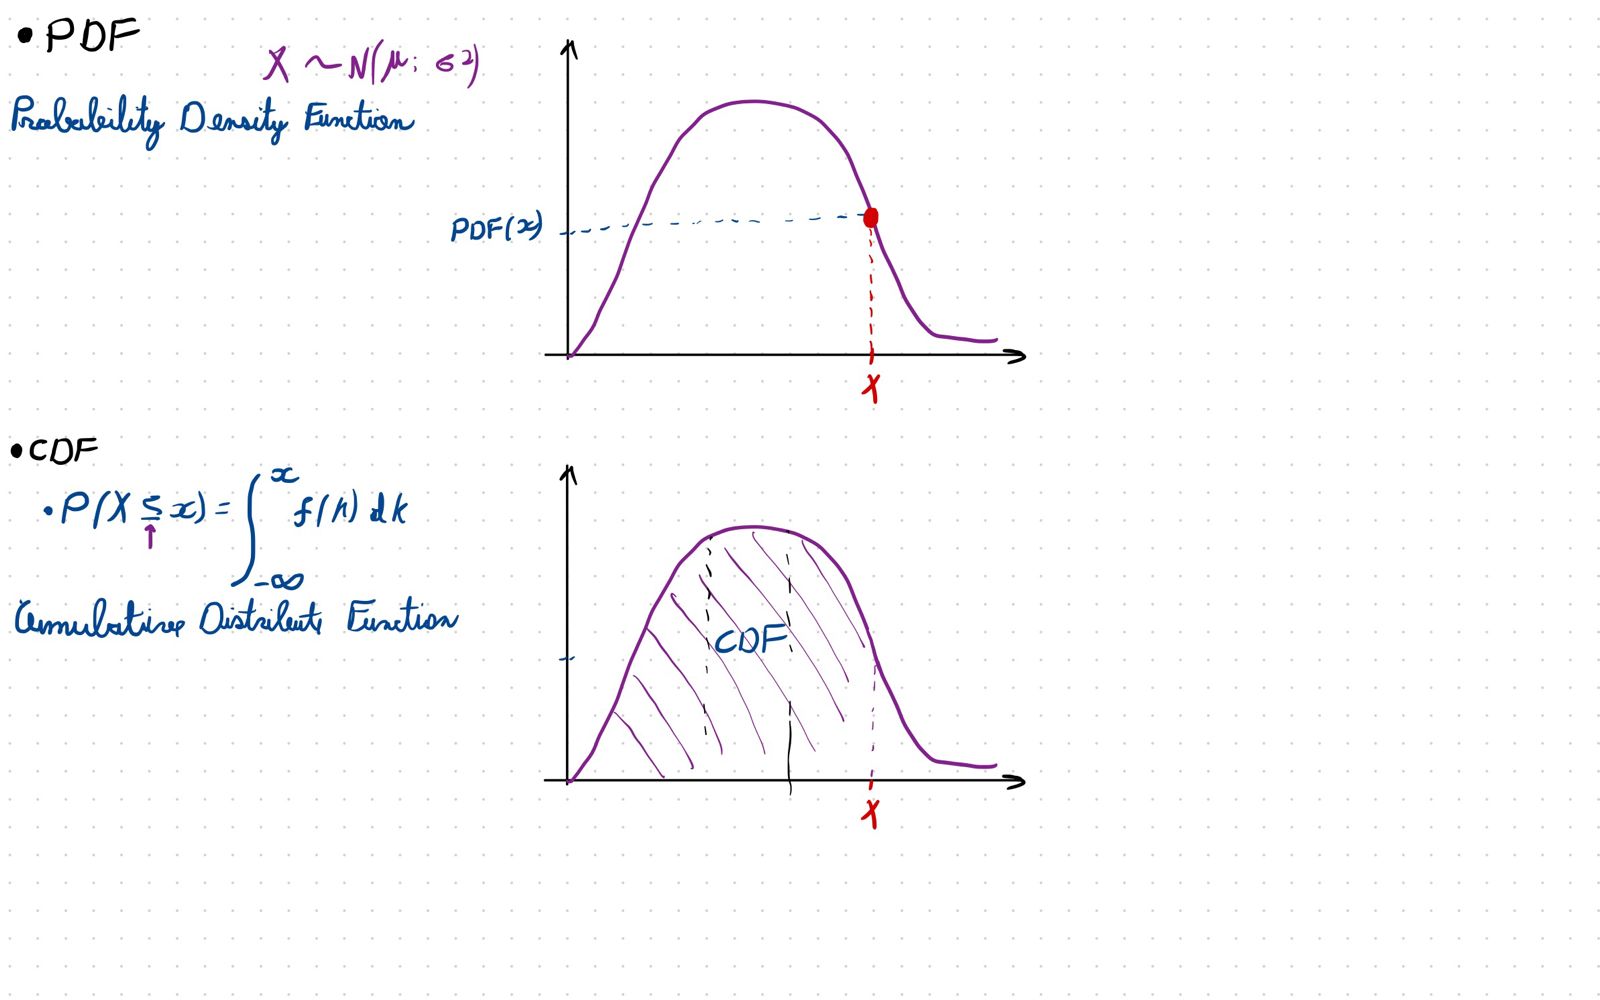 • PDF
X ~ N(μ; σ²)
Probability Density Function
PDF(x)
X
• CDF
• P(X ≤ x) = ∫_{-∞}^{x} f(k) dk
↑
Cumulative Distribute Function
CDF
X